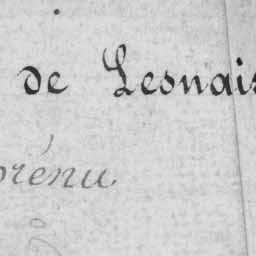 de Lesnais
prénu